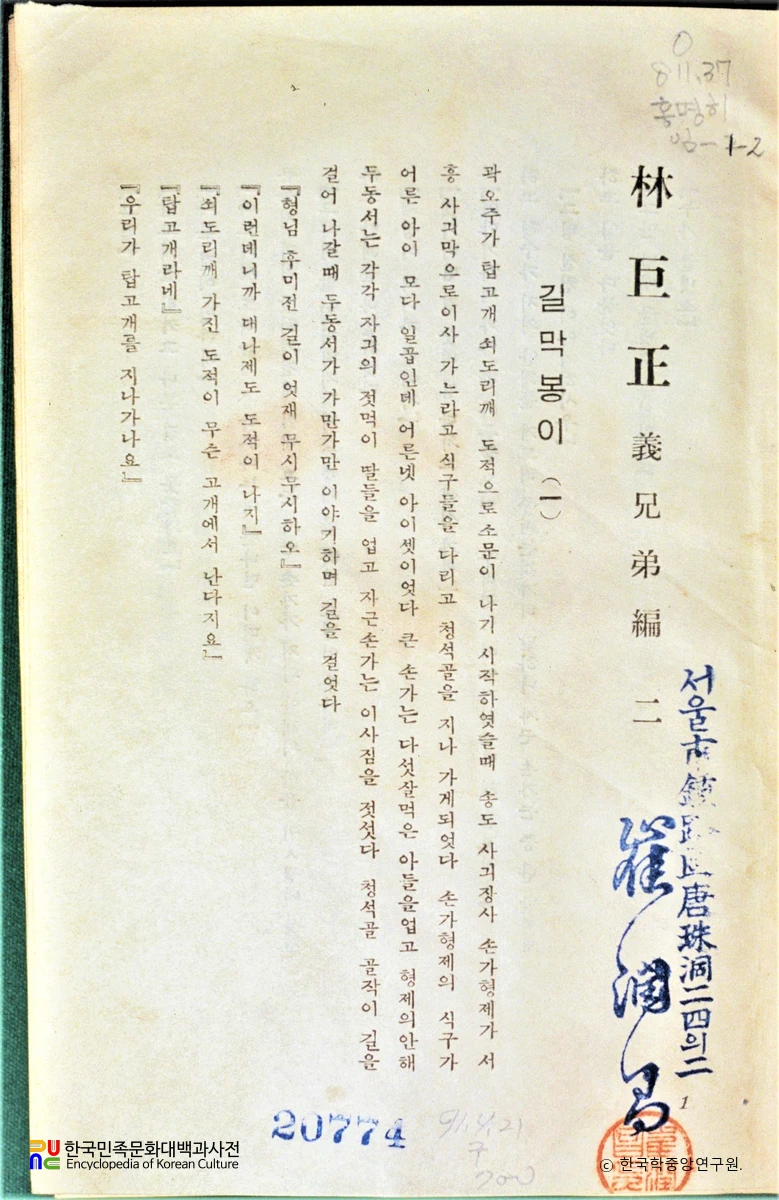 811.37
홍명히
임-1-2
林巨正 義兄弟編 二
길막봉이 (一)
곽오주가 탑고개 쇠도리깨 도적으로소문이 나기 시작하엿슬때 송도 사긔장사 손가형제가 서
흥 사긔막으로이사 가느라고 식구들을 다리고 청석골을 지나 가게되엇다 손가형제의 식구가
어른 아이 모다 일곱인데 어른넷 아이셋이엇다 큰 손가는 다섯살먹은 아들을업고 형제의안해
두동서는 각각 자긔의 젓먹이 딸들을 업고 자근손가는 이사짐을 젓섯다 청석골 골작이 길을
걸어 나갈때 두동서가 가만가만 이야기하며 길을 걸엇다
『형님 후미전 길이 엇재 무시무시하오』
『이런데니까 대나제도 도적이 나지』
『쇠도리깨 가진 도적이 무슨 고개에서 난다지요』
『탑고개라네』
『우리가 탑고개를 지나가나요』
서울市 鍾路區唐珠洞二四의二
崔潤
1
20774
한국민족문화대백과사전
Encyclopedia of Korean Culture
ⓒ 한국학중앙연구원.